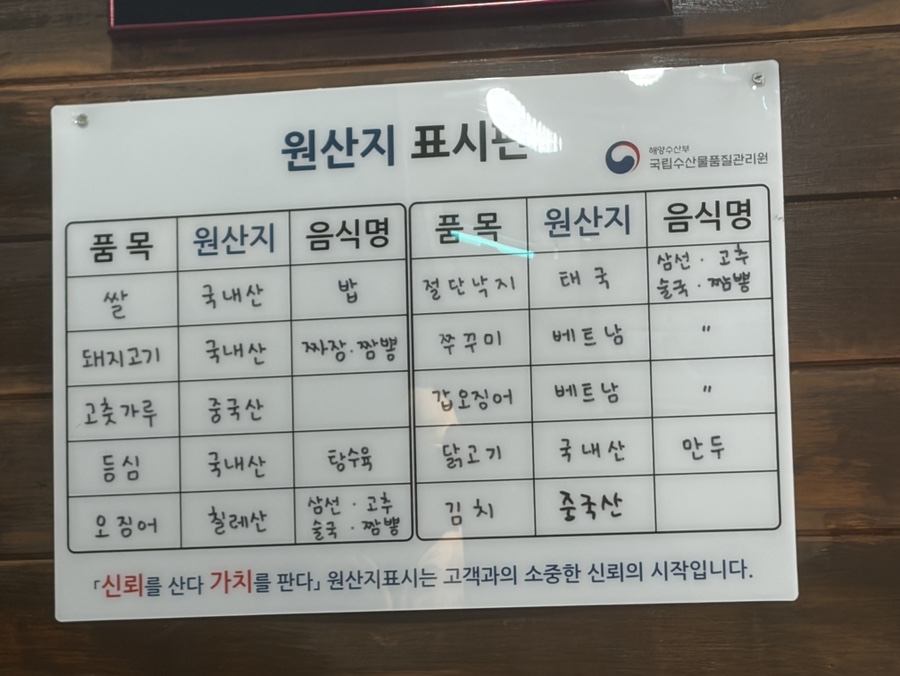 원산지 표시판
해양수산부
국립수산물품질관리원
품목 원산지 음식명
쌀 국내산 밥
돼지고기 국내산 짜장·짬뽕
고춧가루 중국산
등심 국내산 탕수육
오징어 칠레산 삼선·고추
술국·짬뽕
품목 원산지 음식명
절단낙지 태국 삼선·고추
술국·짬뽕
쭈꾸미 베트남 〃
갑오징어 베트남 〃
닭고기 국내산 만두
김치 중국산
「신뢰를 산다 가치를 판다」 원산지표시는 고객과의 소중한 신뢰의 시작입니다.